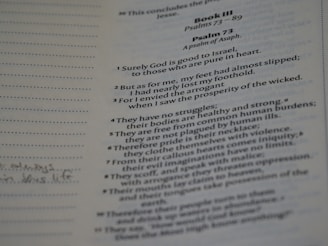 ²⁰ This concludes the
Jesse.
Book III
Psalms 73 – 89
Psalm 73
A psalm of Asaph.
¹ Surely God is good to Israel,
to those who are pure in heart.
² But as for me, my feet had almost slipped;
I had nearly lost my foothold.
³ For I envied the arrogant
when I saw the prosperity of the wicked.
⁴ They have no struggles;
their bodies are healthy and strong.
⁵ They are free from common human burdens;
they are not plagued by human ills.
⁶ Therefore pride is their necklace;
they clothe themselves with violence.
⁷ From their callous hearts comes iniquity;
their evil imaginations have no limits.
⁸ They scoff, and speak with malice;
with arrogance they threaten oppression.
⁹ Their mouths lay claim to heaven,
and their tongues take possession of the
earth.
¹⁰ Therefore their people turn to them
and drink up waters in abundance.
¹¹ They say, "How would God know?
Does the Most High know anything?"
always
life